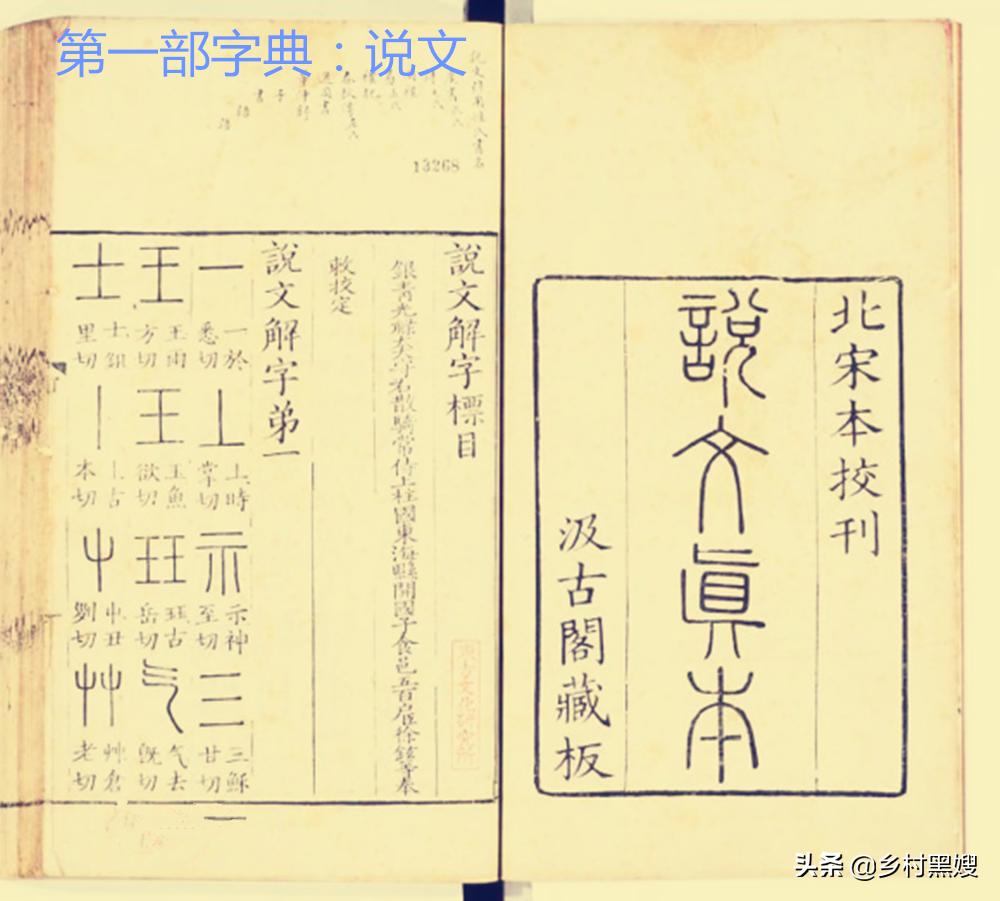 第一部字典：说文
北宋本挍刊
說文眞本
汲古閣藏板
13268
說文解字標目
銀青光祿大夫守右散騎常侍上柱國東海縣開國子食邑五百戶臣徐鉉等奉
敕挍定
說文解字弟一
一 一於悉切 丄 丄時掌切 示 示神至切 三 三穌甘切
王 王雨方切 王 王魚欲切 玨 玨古岳切 气 气去旣切
士 士鉏里切 丨 丨古本切 屮 屮丑劉切 艸 艸倉老切
东方文化研究所
头条 @乡村黑嫂